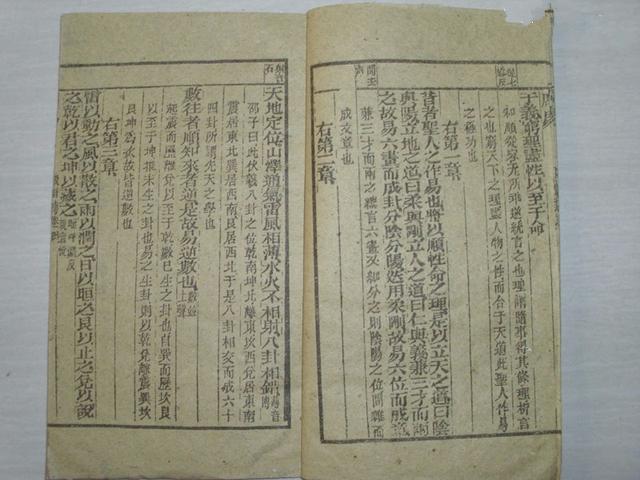 于義窮理盡性以至于命
和順從容无所乖逆統言之也理謂隨事得其條理析言
之也窮天下之理盡人物之性而合于天道此聖人作易
之極功也
右第一章
昔者聖人之作易也將以順性命之理是以立天之道曰陰
與陽立地之道曰柔與剛立人之道曰仁與義兼三才而兩
之故易六畫而成卦分陰分陽迭用柔剛故易六位而成章
兼三才而兩之總言六畫又細分之則陰陽之位間雜而
成文章也
右第二章
射音石
天地定位山澤通氣雷風相薄水火不相射八卦相錯薄音博
邵子曰此伏羲八卦之位乾南坤北離東坎西兌居東南
震居東北巽居西南艮居西北于是八卦相交而成六十
四卦所謂先天之學也
數往者順知來者逆是故易逆數也數並上聲
起震而歷離兌以至于乾數已生之卦也自巽而歷坎艮
以至于坤推未生之卦也易之生卦則以乾兌離震巽坎
艮坤為次故皆逆數也
右第三章
雷以動之風以散之雨以潤之日以晅之艮以止之兌以說
之乾以君之坤以藏之